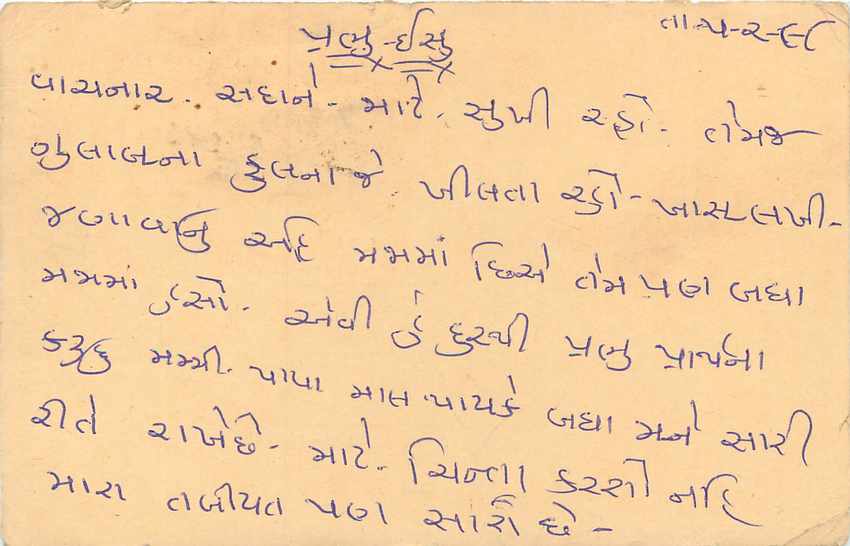 પ્રભુ-ઈસુ
તા ૫-૨-૯૮
વાચનાર. સદાને - માટે. સુખી રહો. તેમજ
ગુલાબના ફુલના જે ખીલતા રહો - ખાસ લખી-
જણાવાનુ અહિ મજામાં છિએ તેમ પણ બધા
મજામાં હસો. એવી હું દુરથી પ્રભુ પ્રાર્થના
કરુછુ મમ્મી. પાપા બધા મને સારી
રીતે રાખેછે - માટે. ચિન્તા કરસો નહિ
મારા તબીયત પણ સારી છે -